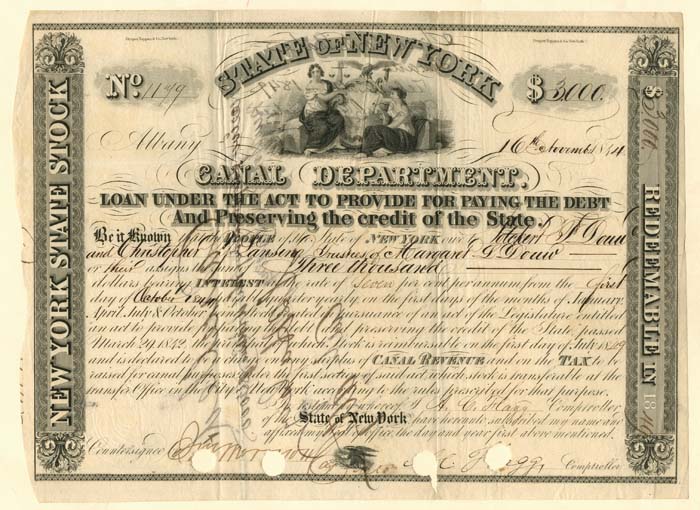 STATE OF NEW YORK
No. 1199
$ 3,000.
Albany 16th November 1844
CANAL DEPARTMENT.
LOAN UNDER THE ACT TO PROVIDE FOR PAYING THE DEBT
And Preserving the credit of the State.
Be it Known PEOPLE of the State of NEW YORK owe
and Christopher Lansing Trustees of Margaret Douw
or their assigns the sum of Three thousand
dollars bearing INTEREST at the rate of Seven per cent per annum from the first
day of October 1844 quarter yearly on the first days of the months of January,
April, July & October in pursuance of an act of the Legislature entitled
an act to provide for paying the debt and preserving the credit of the State, passed
March 29, 1842, the principal of which Stock is reimbursable on the first day of July 1849
and is declared to be on any surplus of CANAL REVENUE and on the TAX to be
raised for canal purposes under the first section of said act which stock is transferable at the
transfer Office in the City of New York according to the rules prescribed for that purpose.
In testimony whereof I, A. C. Flagg Comptroller
of the State of New York have hereunto subscribed my name and
affixed my seal of office, the day and year first above mentioned.
Countersigned
A C Flagg, Comptroller
NEW YORK STATE STOCK
$ REDEEMABLE IN 18